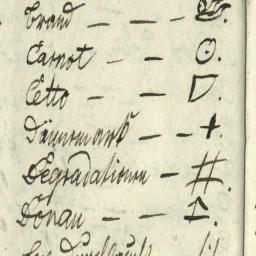 Brand — — —
Carnot — — O.
Cetto — —
Dännemark — — +.
Degradationen — #.
Donau — —